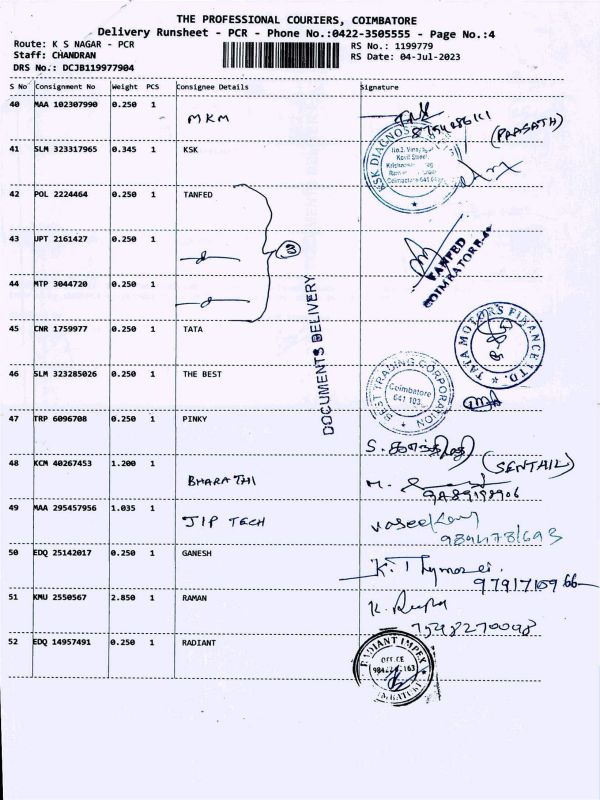 THE PROFESSIONAL COURIERS, COIMBATORE
Delivery Runsheet - PCR - Phone No.:0422-3505555 - Page No.:4
Route: K S NAGAR - PCR RS No.: 1199779
Staff: CHANDRAN RS Date: 04-Jul-2023
DRS No.: DCJB119977904
S No Consignment No Weight PCS Consignee Details Signature
40 MAA 102307990 0.250 1 MKM
(PRASATH)
41 SLM 323317965 0.345 1 KSK
KSK DIAGNOS
42 POL 2224464 0.250 1 TANFED
43 JPT 2161427 0.250 1
3
TANFED
COIMBATORE
44 MTP 3044720 0.250 1
DOCUMENTS DELIVERY
45 CNR 1759977 0.250 1 TATA
TATA MOTORS FINANCE LTD.
46 SLM 323285026 0.250 1 THE BEST
BEST TRADING CORPORATION
Coimbatore
641 103
47 TRP 6096708 0.250 1 PINKY
S.
48 KCM 40267453 1.200 1 BHARATHI
(SENTAIL)
M.
49 MAA 295457956 1.035 1 JIP TECH
50 EDQ 25142017 0.250 1 GANESH
K.
51 KMU 2550567 2.850 1 RAMAN
K. Rupa
7598270098
52 EDQ 14957491 0.250 1 RADIANT
RADIANT IMPEX
OFFICE